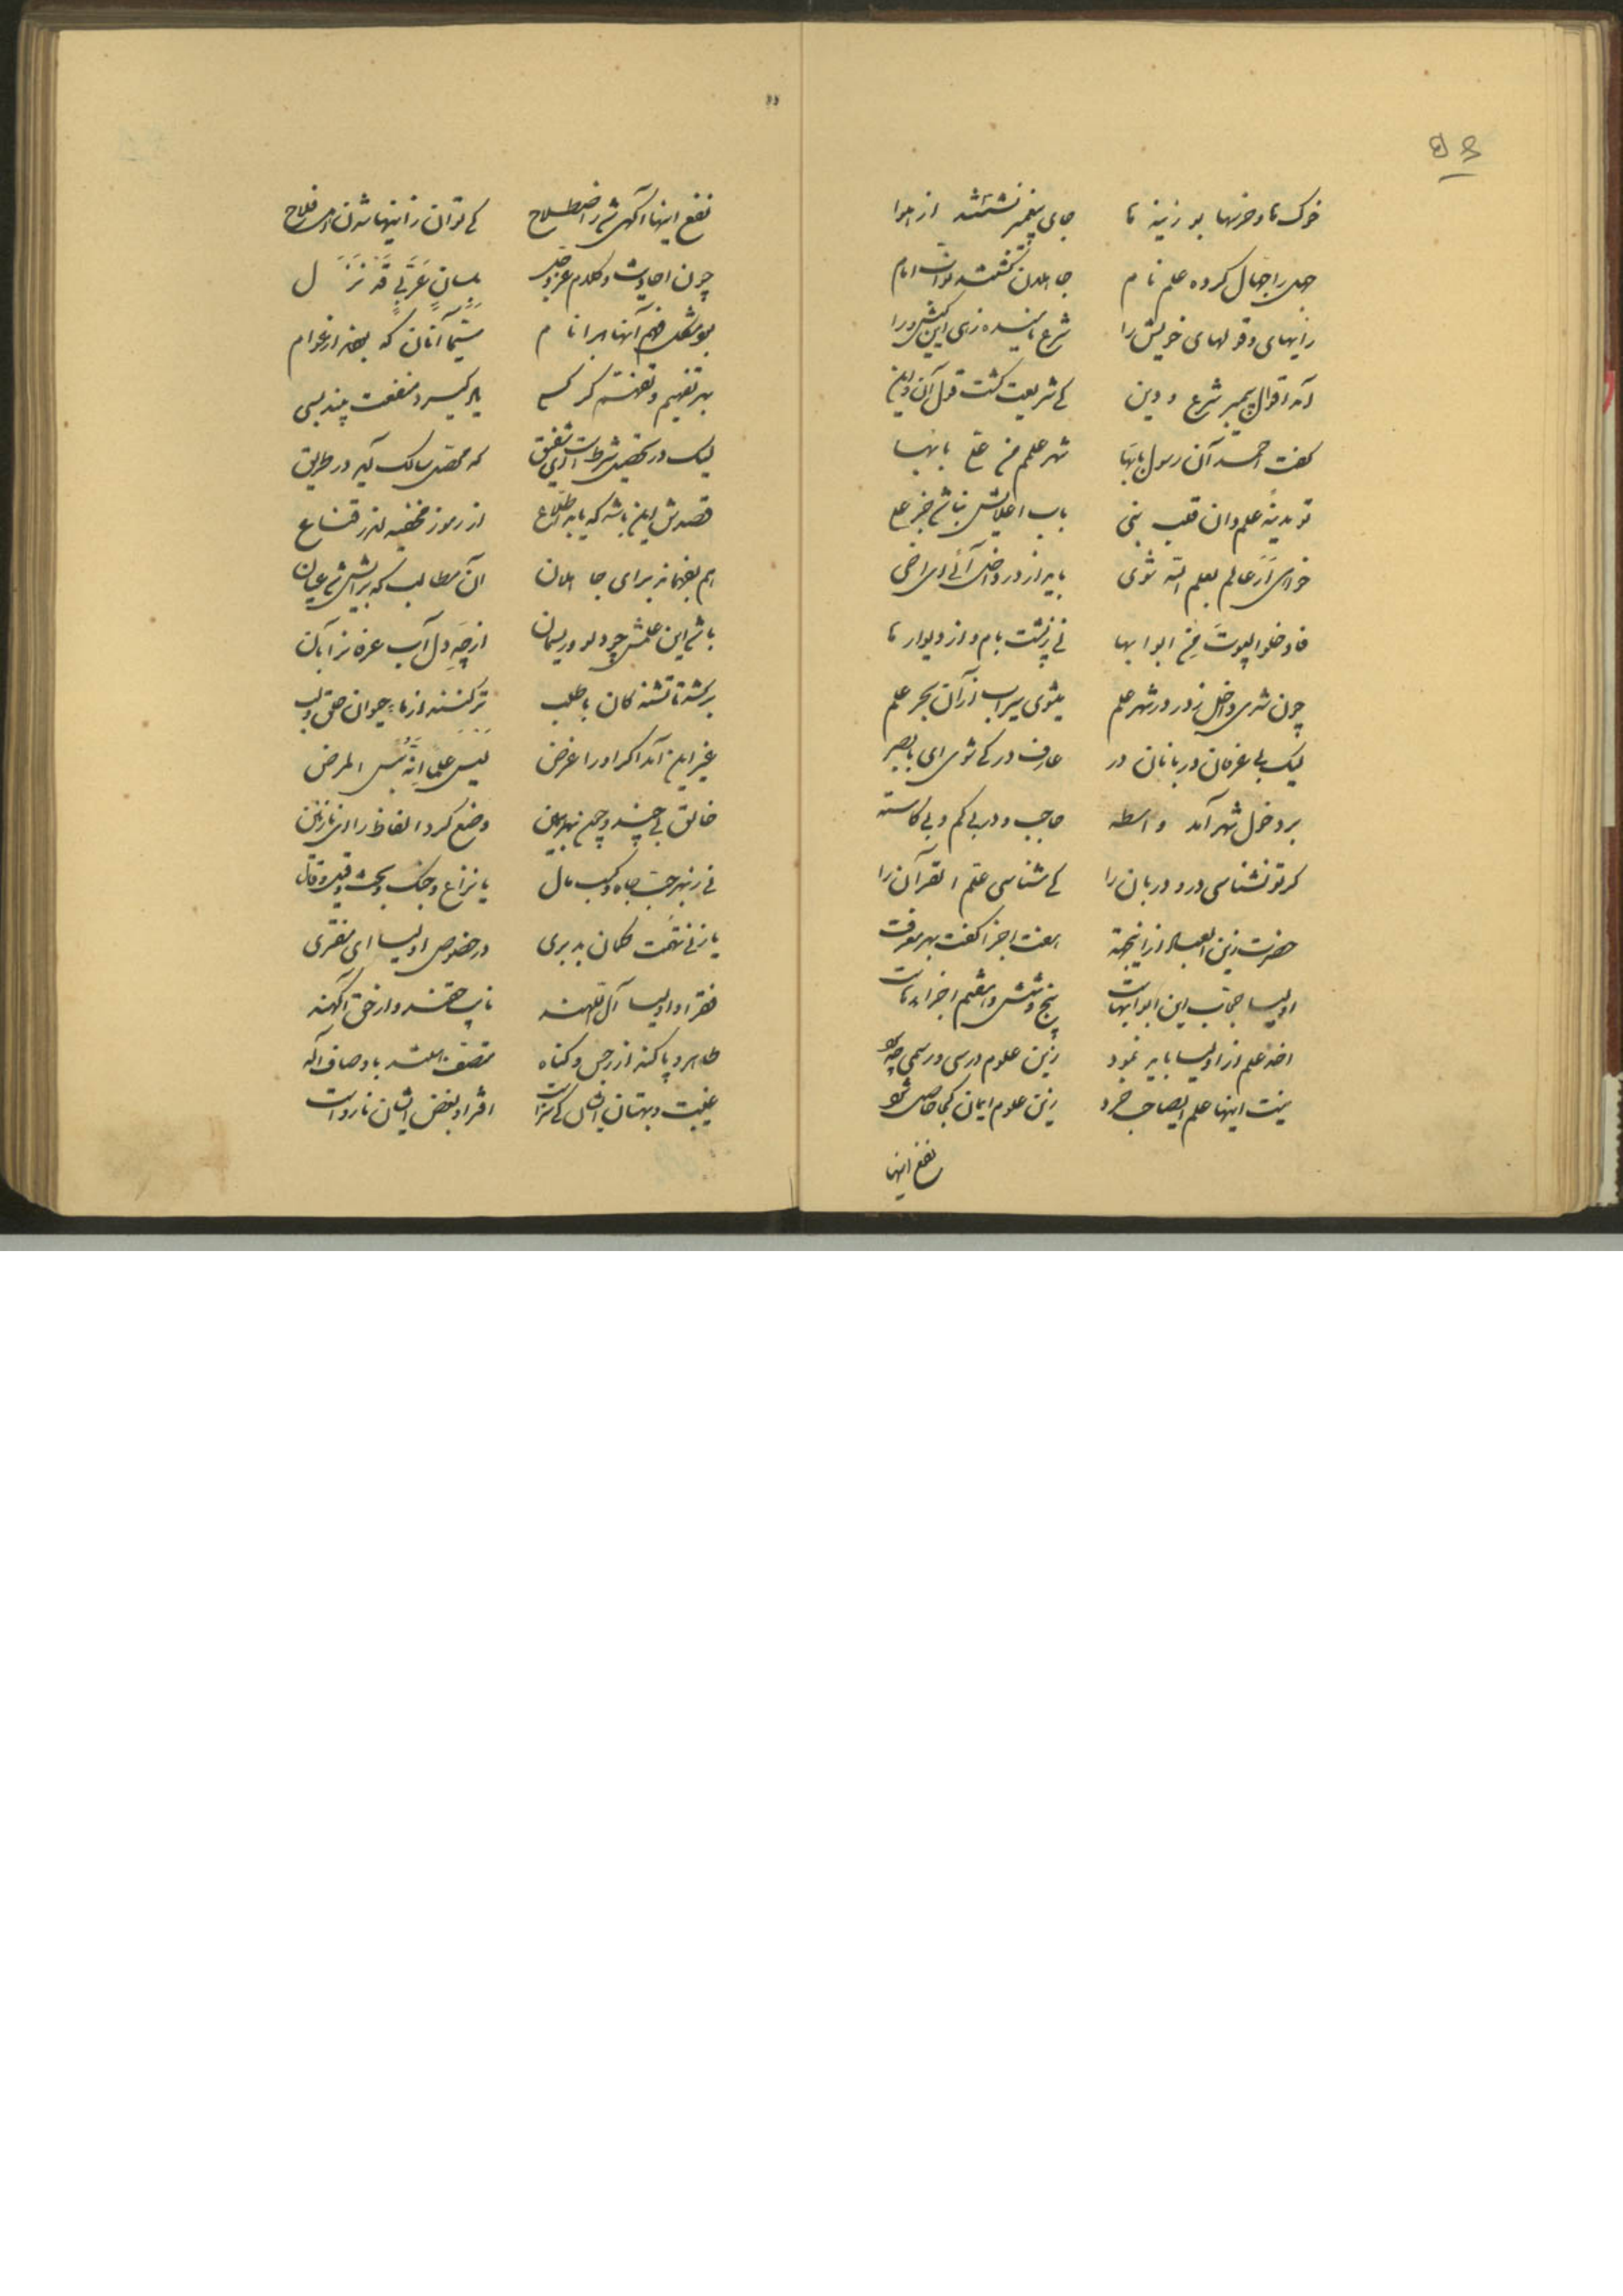 ۵۶
خوک ها و خرسها بوزینه ها جای پیغمبر نشستند از هوا
جهل را جهال کرده علم نام جاهلان گشتند امام
رایهای و قولهای خویش را شرع نامیده زهی این کیش را
آمد اقوال پیمبر شرع و دین کی شریعت گشت قول آن و این
گفت احمد آن رسول شهر علمم من علی بابها
تو مدینه علم دان قلب نبی باب اعلایش نباشد جز علی
خواهی ار عالم بعلم الله شوی باید از در داخل آئی ای اخی
فادخلوا البیوت من ابوابها نی ز پشت بام و از دیوار ها
چون شدی داخل ز در در شهر علم میشوی سیراب از آن بحر علم
لیک بی عرفان دربانان در عارف در کی شوی ای بابصر
بر دخول شهر آمد واسطه حاجب و در بی کم و بی کاسته
گر تو نشناسی در و دربان را کی شناسی علم القرآن را
حضرت زین العباد از اینجهة هفت اجزا گفت بهر معرفت
اولیا این ابوابهاست پنج و شش و هفتم اجزا
اخذ علم از اولیا باید نمود زین علوم درسی و رسمی چه سود
نیست اینها علم ایصاحب خرد زین علوم ایمان کجا حاصل شود
نفع اینها
نفع اینها آگهی شد ز اصطلاح کی توان ز اینها شدن اهل فلاح
چون احادیث و کلام عز و جل بلسان عربی قد نزل
بد مشکل فهم آنها بر انام سیما آنان که بودند از عوام
بهر تفهیم و تفهم گر کسی یاد گیرد منفعت بیند بسی
لیک در تحصیل شرطست ای شفیق که مقصد سالک آید در طریق
قصدش این باشد که یابد اطلاع از رموز مخفیه اندر قناع
هم بفهماند برای جاهلان آن مطالب که برایش شد عیان
باشد این علمش چو دلو و ریسمان از چه دل آب
بر کشد تا تشنه کان باطلب تر کنند از ماء حیوان حلق و لب
غیر این آمد اگر او را غرض لیس علما انه بئس المرض
خالق بی چند و چون بهر همین وضع کرد الفاظ را ای نازنین
نی ز بهر حب جاه و کسب مال یا نزاع و جنگ و بحث و قیل و قال
یا زنی تهمت گمان بد بری در خصوص اولیا ای مفتری
فقرا و اولیا آل اللهند نایب حقند و از حق آگهند
طاهر و پاکند از رجس و گناه متصف هستند باوصاف اله
غیبت و بهتان ایشان کی سزاست افترا و بغض ایشان نارواست